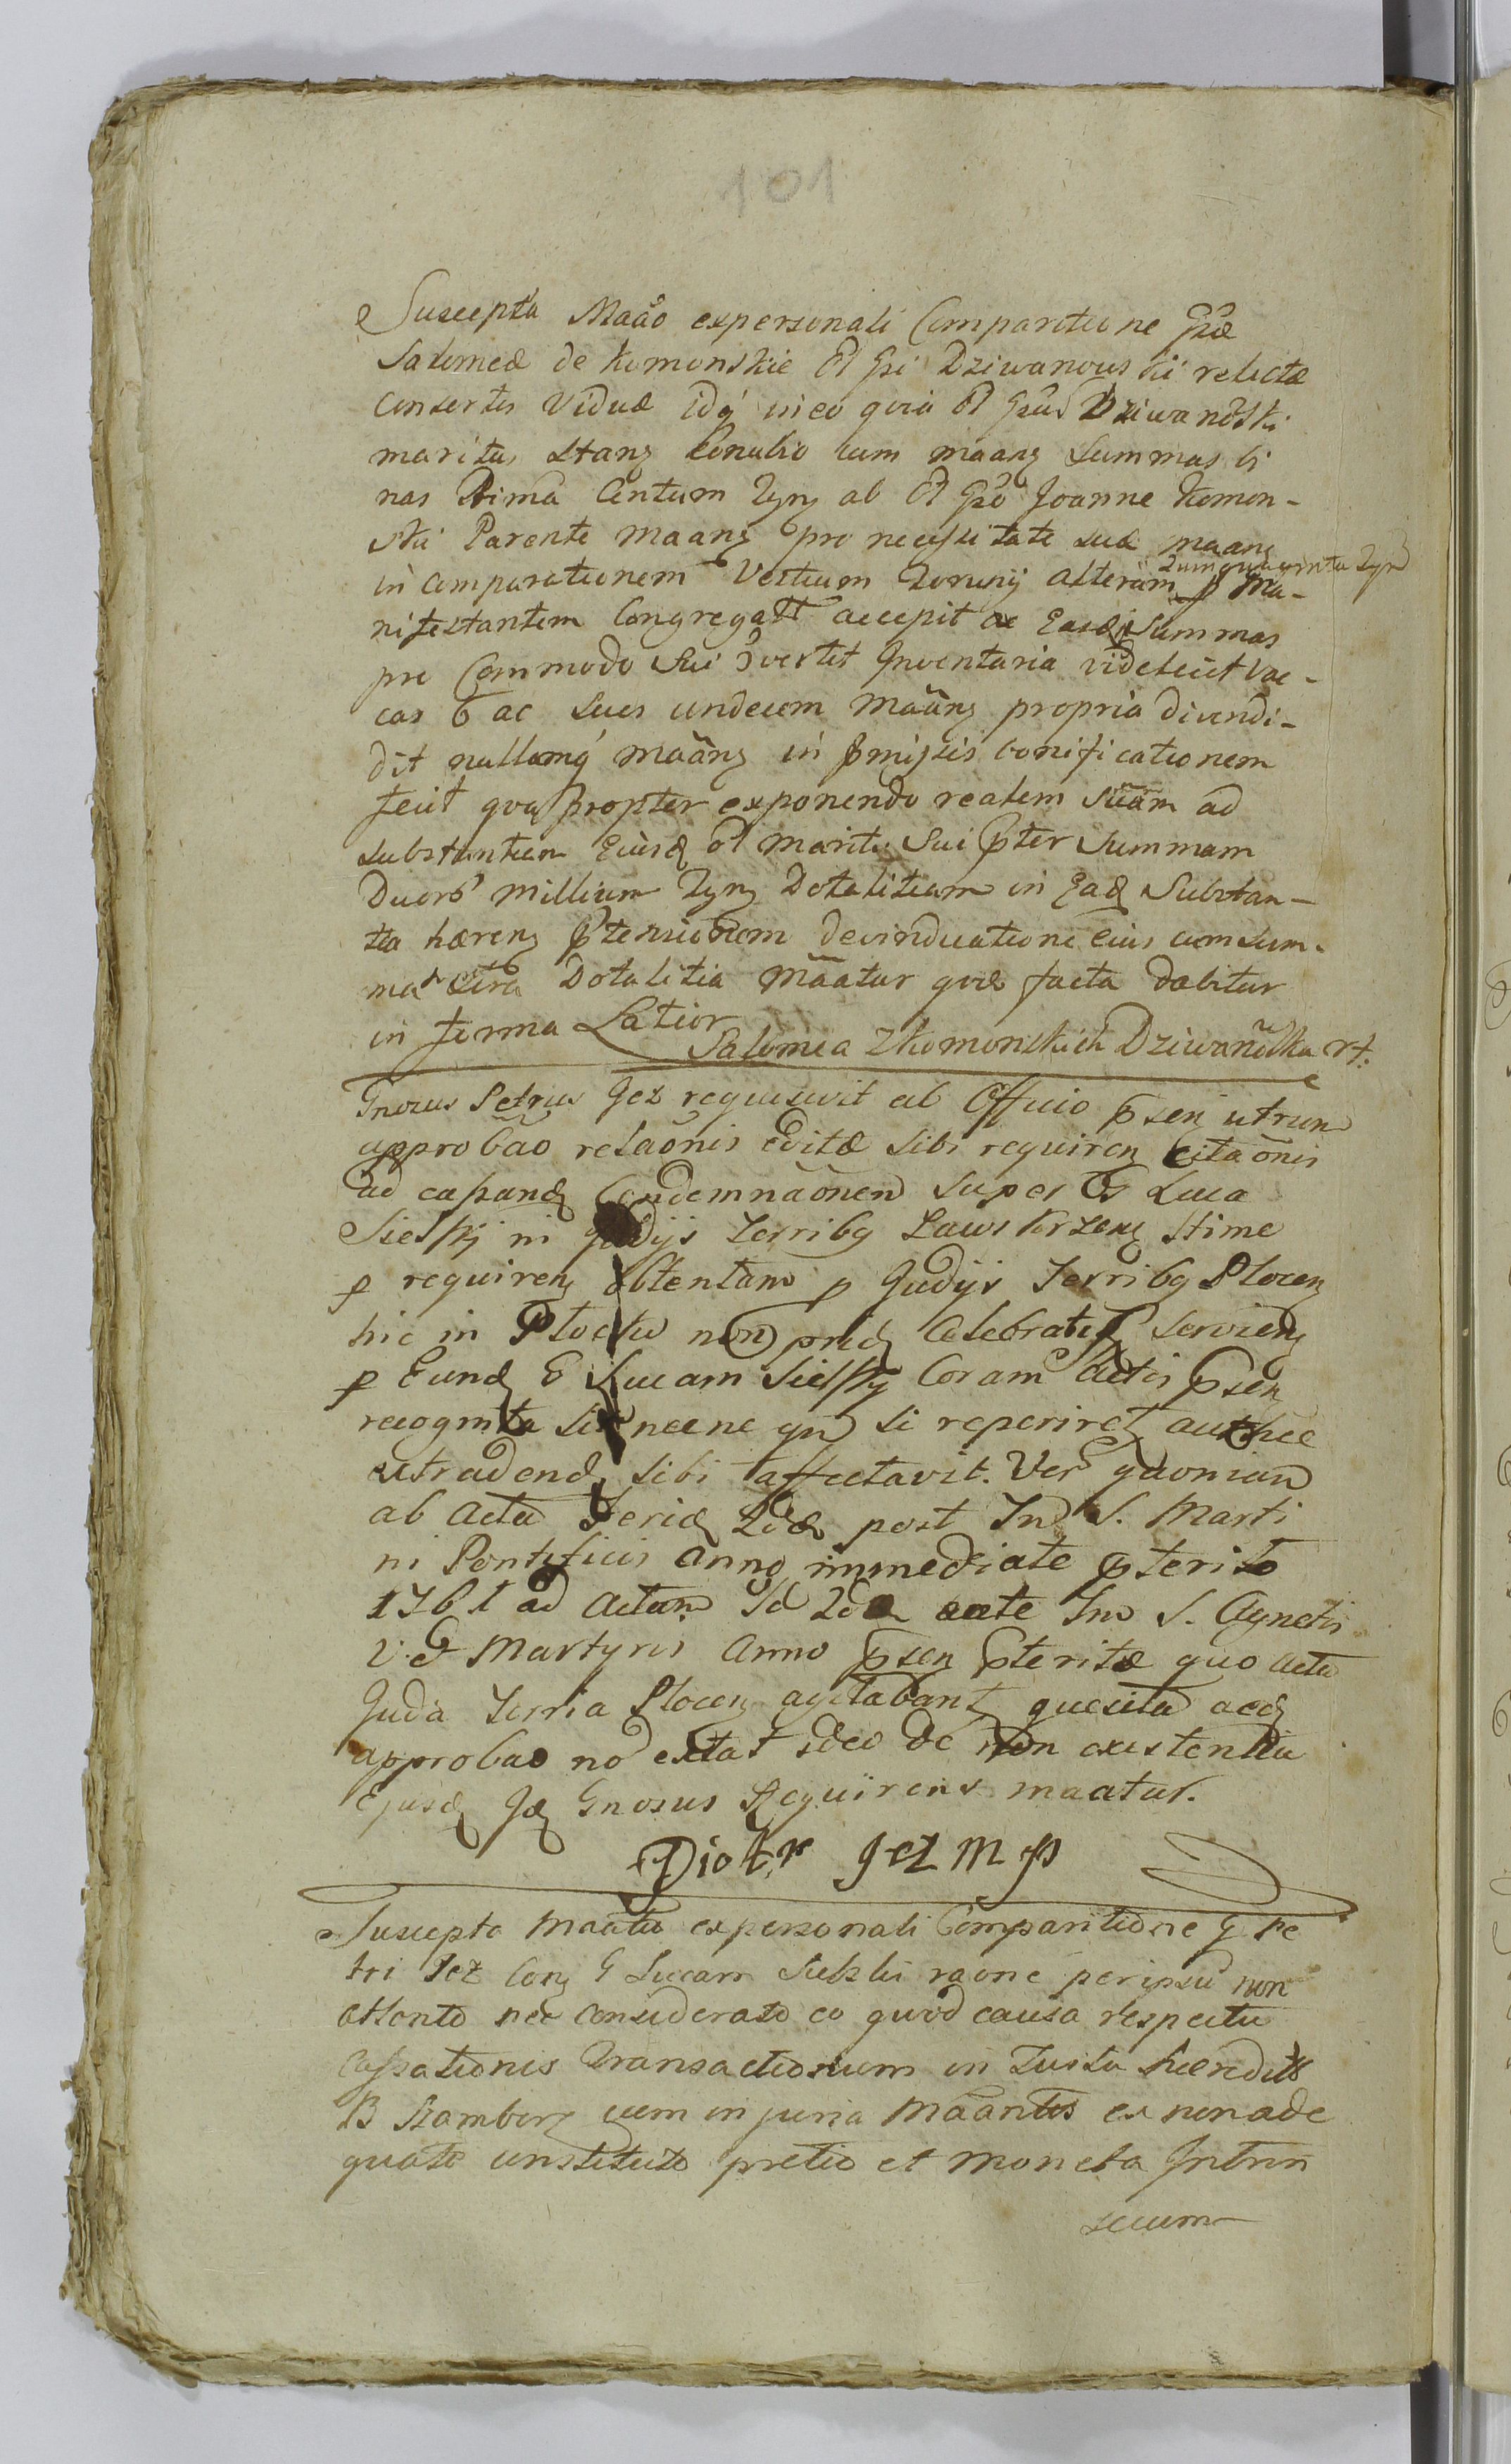 101
Suscepta Maão expersonali Comparitione Gsæ
Salomeæ de Komonskie Ol Gsi Dziwanowski relictæ
Consortis Viduæ idq́ in eo quia Ol Gsus Dziwanoski
maritus stanz Conubio cum maanz Summas bi
nas Prima Centum Tynf ab Ol Gso Joanne Komon-
ski Parente maanz pro necessitate sua maanz
in Comparationem Vestium Torunij alteram quinquaginta Tynf p Ma-
nifestantem Congregatt accepit ac Easdq Summas
pro Commodo Sui Overtit Inventaria videlicet Vac-
cas 6 ac Sues undecem Maãnz propria divendi-
dit nullamq́ maãnz in pmissis bonificationem
fecit qua propter exponendo reatem Suãm ad
substantiam Eiusd Ol Mariti Sui pter Summam
Duorō Millium Tynf Dotalitiam in Ead Substan-
tia hærenz ptensionem devinduatione eius cum Sum-
ma Cētra Dotalitia Mãatur quæ facta dabitur
in forma Latior
Salomea z Komonskich Dziwanōska rt.
Gnosus Petrus Jez requisivit ab Officio psen utrum
approbão relaõnis Editæ Sibi requiren Citaõnis
ad capand Condemnãonem super G Luca
Sielski in Judijs Terribq Zawskrzen Stime
p requiren obtentam p Judijs Terribq Plocen
hic in Plocko non pridq Celebratis Servien
p Eund G Lucam Sielski Coram Actis psen
recognita sit necne qm si reperiret authce
extradend Sibi affectavit. Ver quoniam
ab Actu Feriæ 2dæ post Fm S. Marti
ni Pontificis anno immediate pterito
1761 ad Actum Fd 2dæ ante Fm S. Agnetis
V. et Martyris Anno psen pteritæ quo Actu
Judia Terria Plocen agitabant quesita aed
approbao no extat ideo de Non existentia
Ejusd Jd Gnosus Requirens maatur.
Piotr Jez mp
Suscepta Maatio expersonali Comparitione G Pe
tri Jez Conz G Lucam Sielski raone peripsu non
attento nec considerato eo quod causa respectu
Cassationis Transactionum in Tuista hæredit
B Szamborz cum in juria Maantis ex non ade
quate instituto pretio et moneta Intrin
secum